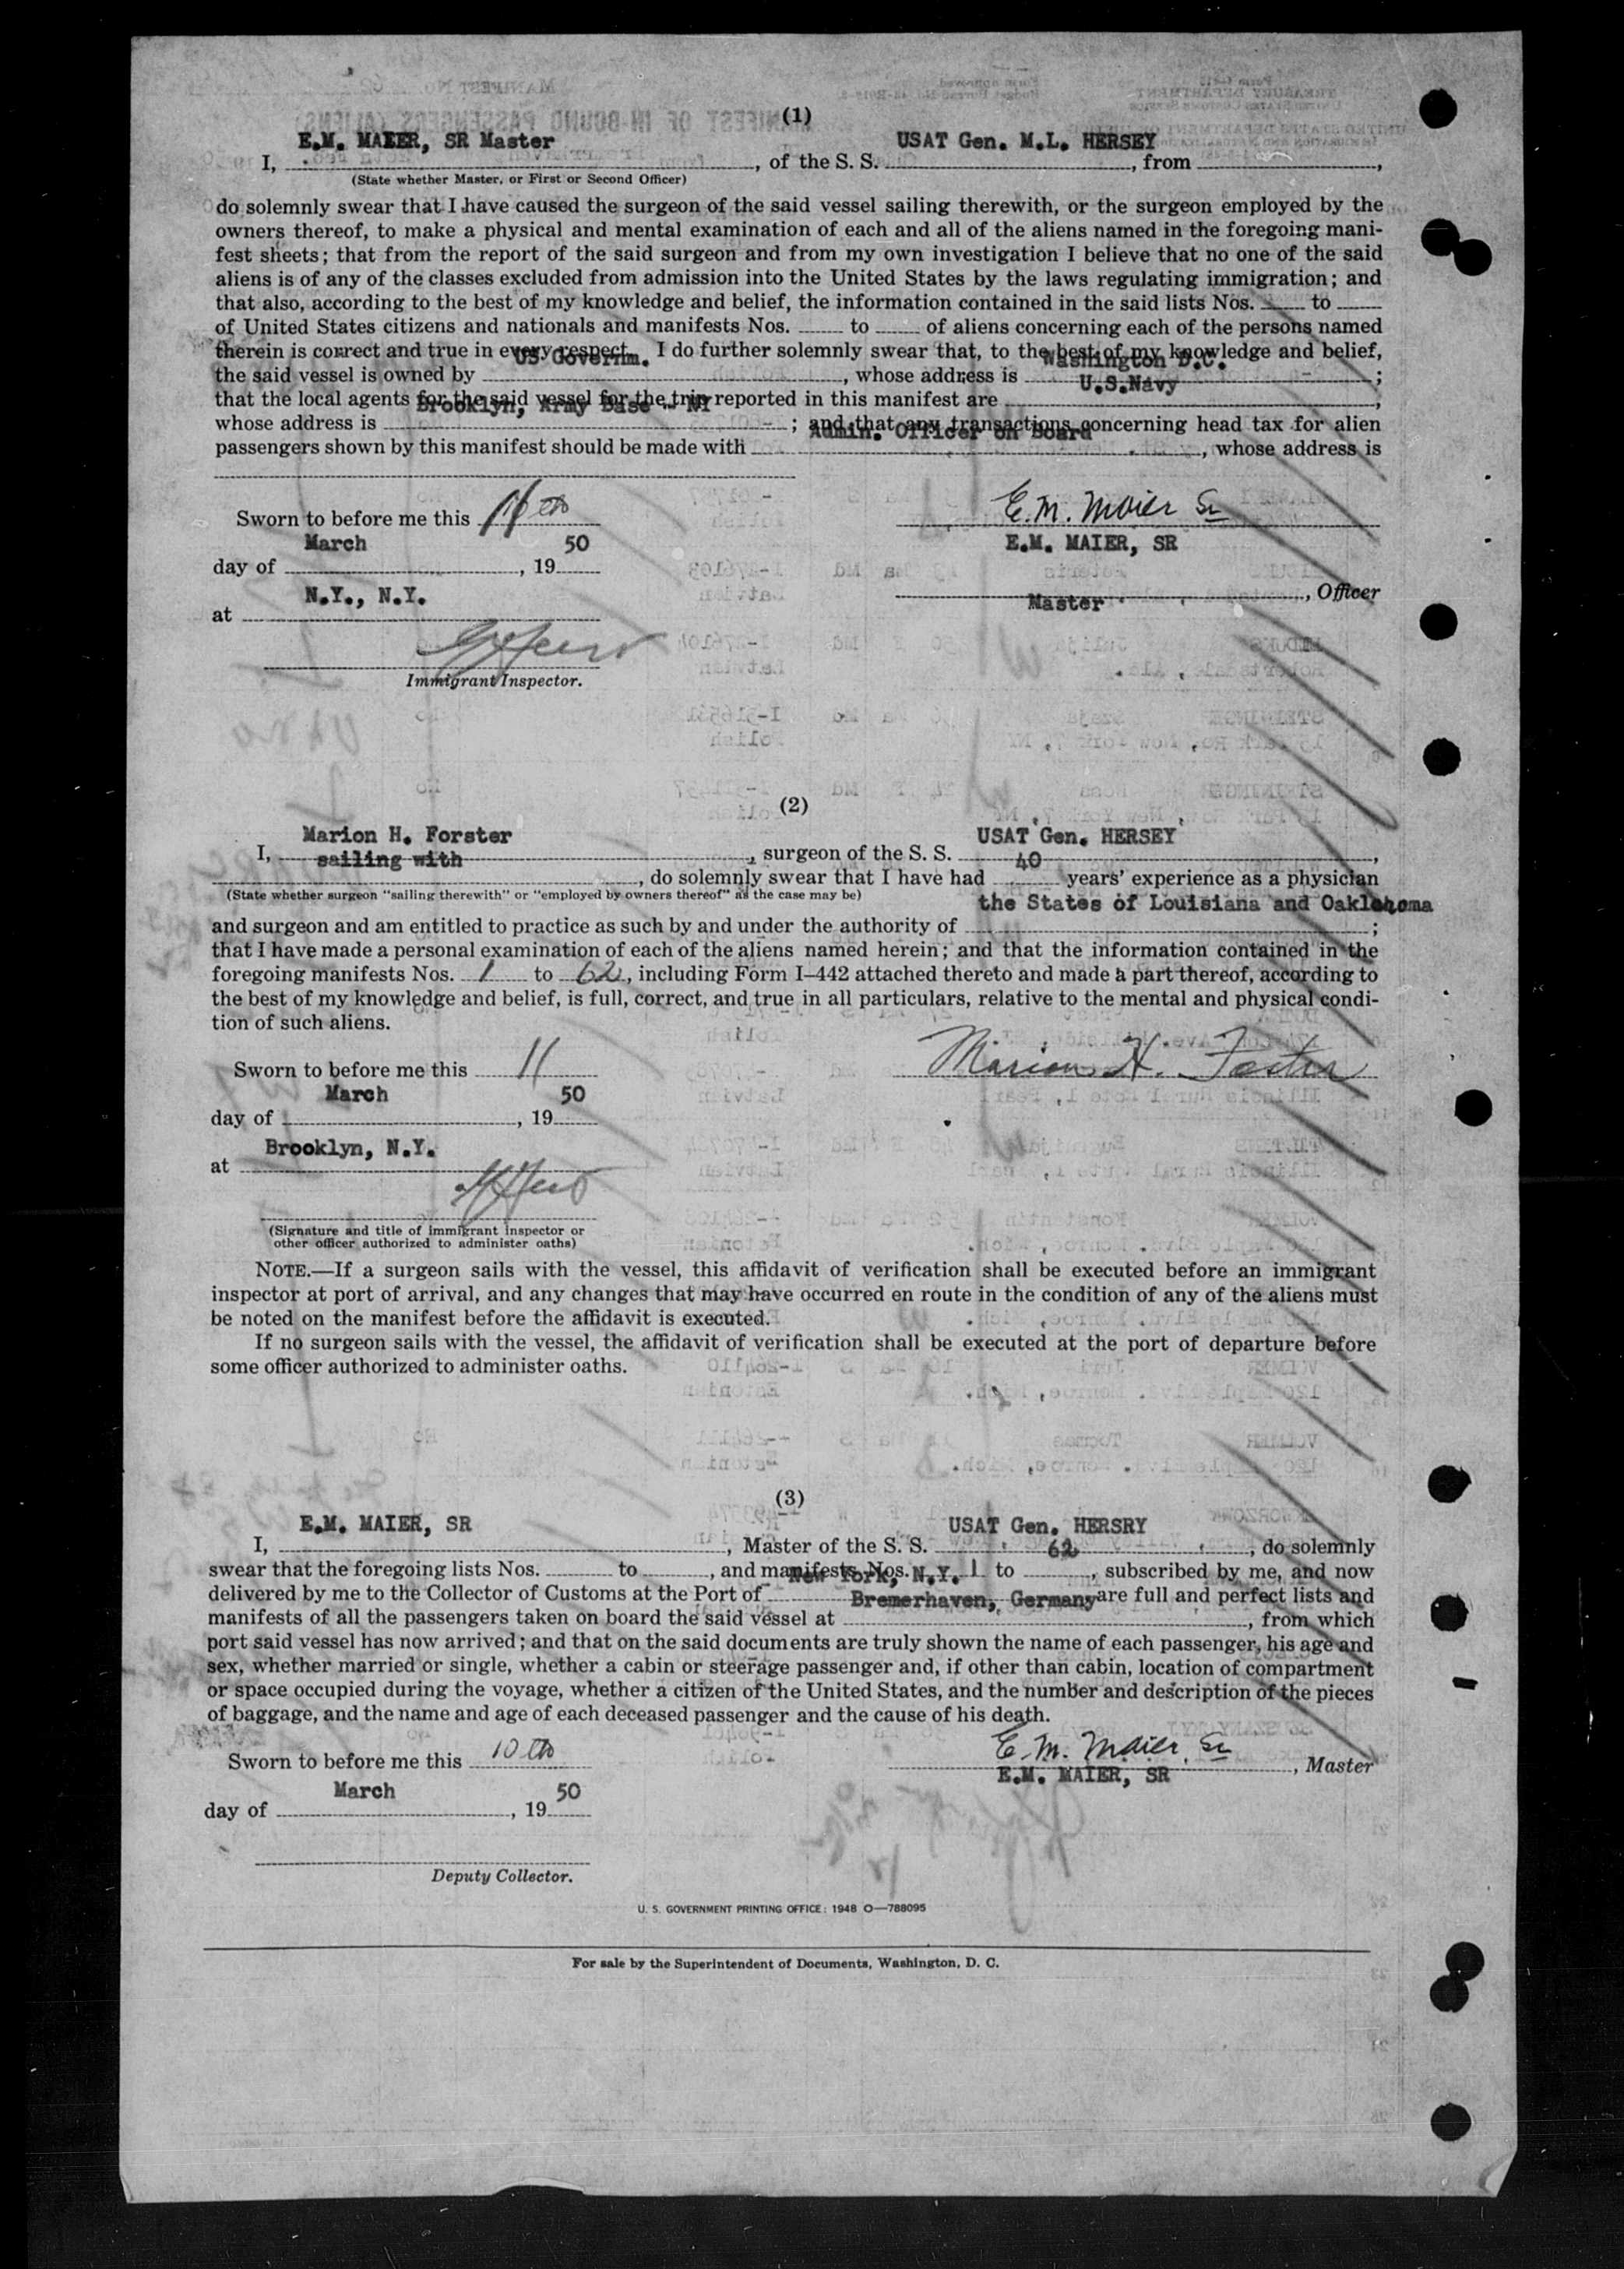 (1)
E.M. MAIER, SR Master USAT Gen. M.L. HERSEY
I, , of the S. S. , from ,
(State whether Master, or First or Second Officer)
do solemnly swear that I have caused the surgeon of the said vessel sailing therewith, or the surgeon employed by the
owners thereof, to make a physical and mental examination of each and all of the aliens named in the foregoing mani-
fest sheets; that from the report of the said surgeon and from my own investigation I believe that no one of the said
aliens is of any of the classes excluded from admission into the United States by the laws regulating immigration; and
that also, according to the best of my knowledge and belief, the information contained in the said lists Nos. to
of United States citizens and nationals and manifests Nos. to of aliens concerning each of the persons named
therein is correct and true in every respect. I do further solemnly swear that, to the best of my knowledge and belief,
US Governm. Washington D.C.
the said vessel is owned by , whose address is ;
U.S.Navy
that the local agents for the said vessel for the trip reported in this manifest are ,
Brooklyn, Army Base - NY
whose address is ; and that any transactions concerning head tax for alien
Admin. Officer on Board
passengers shown by this manifest should be made with , whose address is
Sworn to before me this E.M. Maier Sr
March 50 E.M. MAIER, SR
day of , 19
N.Y., N.Y. , Officer
Master
at
Immigrant Inspector.
(2)
Marion H. Forster USAT Gen. HERSEY
I, , surgeon of the S. S. ,
sailing with 40
, do solemnly swear that I have had years' experience as a physician
(State whether surgeon "sailing therewith" or "employed by owners thereof" as the case may be)
the States of Louisiana and Oaklahoma
and surgeon and am entitled to practice as such by and under the authority of ;
that I have made a personal examination of each of the aliens named herein; and that the information contained in the
foregoing manifests Nos. 1 to 62, including Form I–442 attached thereto and made a part thereof, according to
the best of my knowledge and belief, is full, correct, and true in all particulars, relative to the mental and physical condi-
tion of such aliens.
Sworn to before me this 11 Marion H. Foster
March 50
day of , 19
Brooklyn, N.Y.
at
(Signature and title of immigrant inspector or
other officer authorized to administer oaths)
NOTE.—If a surgeon sails with the vessel, this affidavit of verification shall be executed before an immigrant
inspector at port of arrival, and any changes that may have occurred en route in the condition of any of the aliens must
be noted on the manifest before the affidavit is executed.
If no surgeon sails with the vessel, the affidavit of verification shall be executed at the port of departure before
some officer authorized to administer oaths.
(3)
E.M. MAIER, SR USAT Gen. HERSRY
I, , Master of the S. S. , do solemnly
62
swear that the foregoing lists Nos. to , and manifests Nos. 1 to , subscribed by me, and now
New York, N.Y.
delivered by me to the Collector of Customs at the Port of are full and perfect lists and
Bremerhaven, Germany
manifests of all the passengers taken on board the said vessel at , from which
port said vessel has now arrived; and that on the said documents are truly shown the name of each passenger, his age and
sex, whether married or single, whether a cabin or steerage passenger and, if other than cabin, location of compartment
or space occupied during the voyage, whether a citizen of the United States, and the number and description of the pieces
of baggage, and the name and age of each deceased passenger and the cause of his death.
Sworn to before me this 10th E.M. Maier, Sr
, Master
March 50 E.M. MAIER, SR
day of , 19
Deputy Collector.
U. S. GOVERNMENT PRINTING OFFICE: 1948 O—788095
For sale by the Superintendent of Documents, Washington, D. C.